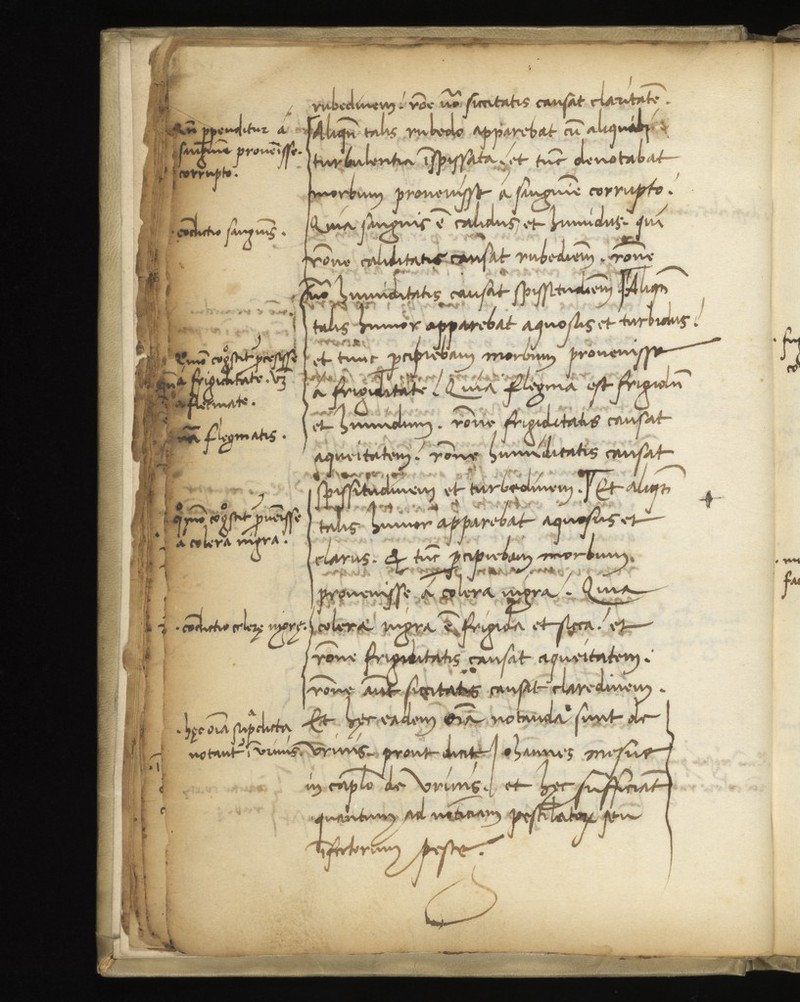 rubedinem. rõe uõ siccitatis causat claritatẽ.
Aliqñ talis rubedo apparebat cũ aliquali
turbulentia ĩspissata. et tũc denotabat
morbum provenisse á sanguĩe corrupto.
Quia sanguis ẽ calidus et humidus. qui
rõne caliditatis causat rubediẽm. rõne
uõ humiditatis causat spissitudiẽm. Aliqñ
talis humor apparebat aquosus et turbidus.
et tunc ꝑcipiebam morbum provenisse
a frigiditate. Quia flegma est frigidũ
et humidum. rõne frigiditatis causat
aqueitatem. rõne humiditatis causat
spissitudinem et turbedinem. Et aliqñ
talis humor apparebat aquosus et
clarus. & tũc ꝑcipiebam morbum
provenisse á colera nigra. Quia
colera nigra ẽ frigida et sicca. et
rõne frigiditatis causat aqueitatem.
rõne aũt siccitatis causat claredinem.
Et hęc eadem oĩa notanda sunt de
urinis. prout dicit Johannes mesue
in caplo de urinis. et hęc sufficiant
quantum ad noticiam pestilatoꝝ seu
ĩfectorum peste.
Qñ ꝓpenditur á
sanguine provenisse
corrupto.
cõdictio sanguis.
Quõ cogscit pcessisse
a frigiditate. vꝫ
a flecmate.
nã flegmatis.
quõ cogscit pvenisse
a colera nigra.
cõdictio colerę nigrę.
hęc oĩa supdicta
notant ĩ urinis.